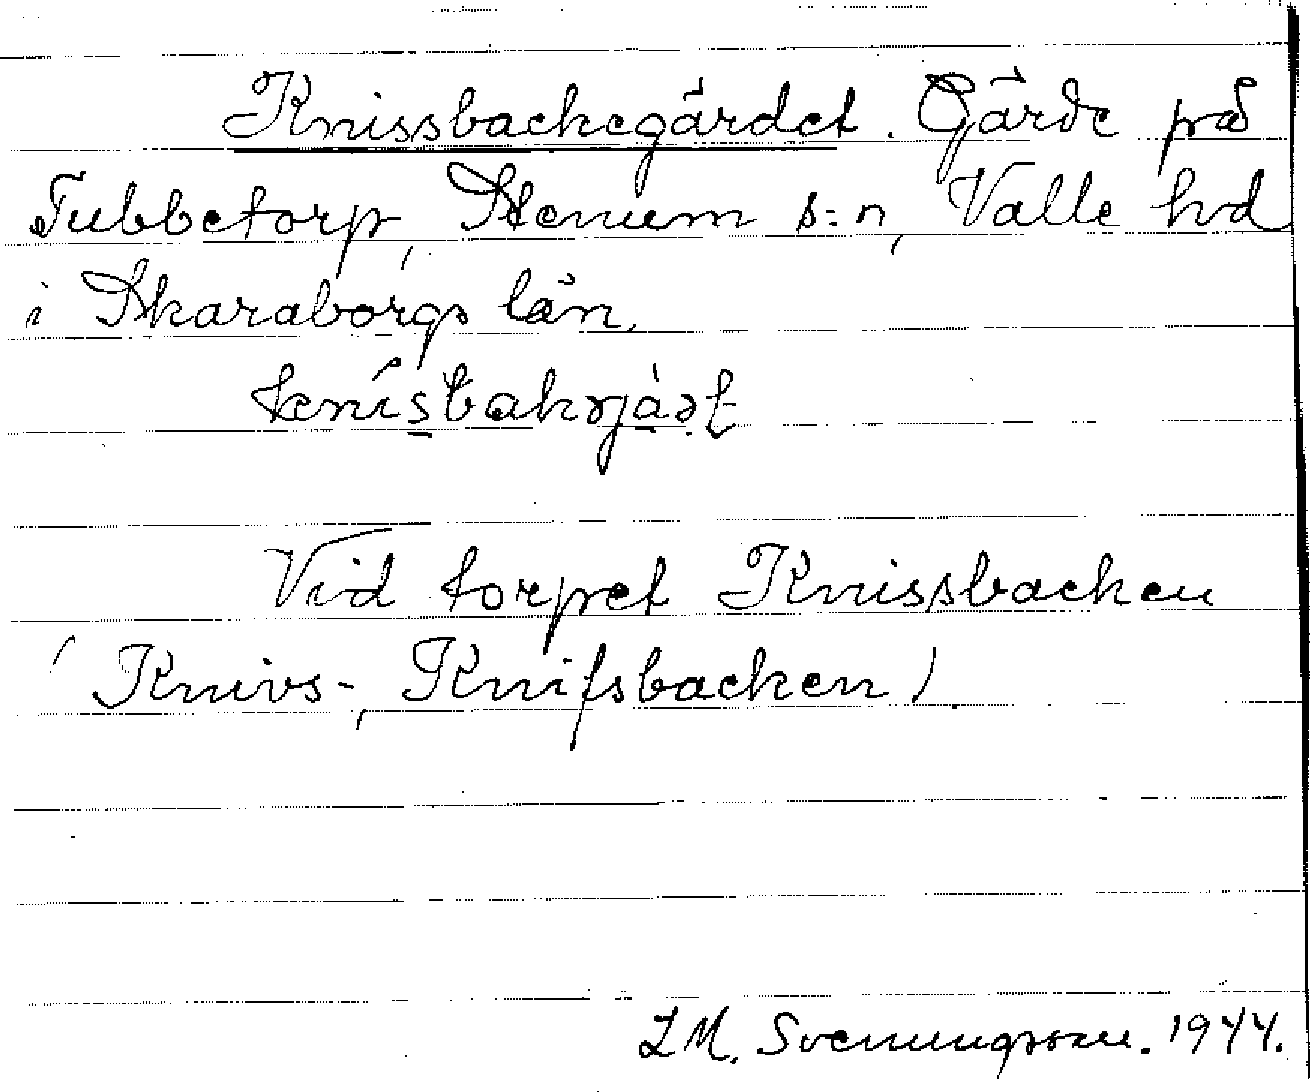 Knissbackegärdet. Gärde på
Tubbetorp, Stenum s:n, Valle hd
i Skaraborgs län.
Vid torpet Knissbacken
(Knivs-, Knifsbacken).
L M. Svenungsson. 1944.